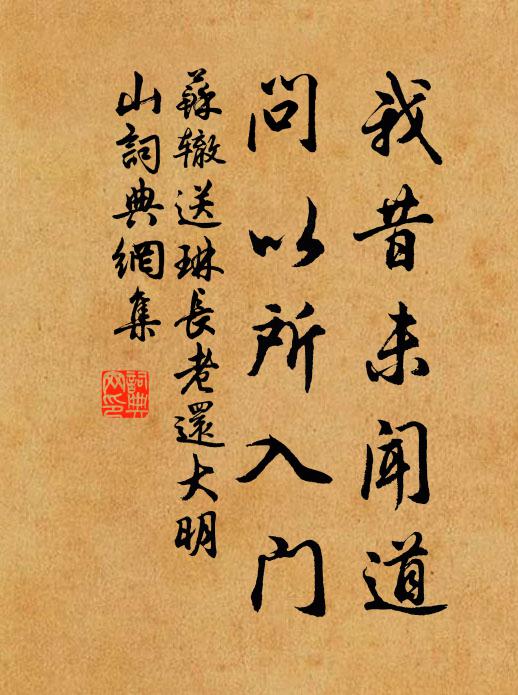 我昔未闻道
问以所入门
蘇辙送琳長老還大明
山詞典網集
詞典
网印